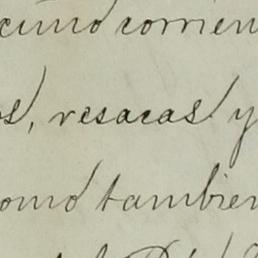 cimo corrien
os, resacas y
omo tambien